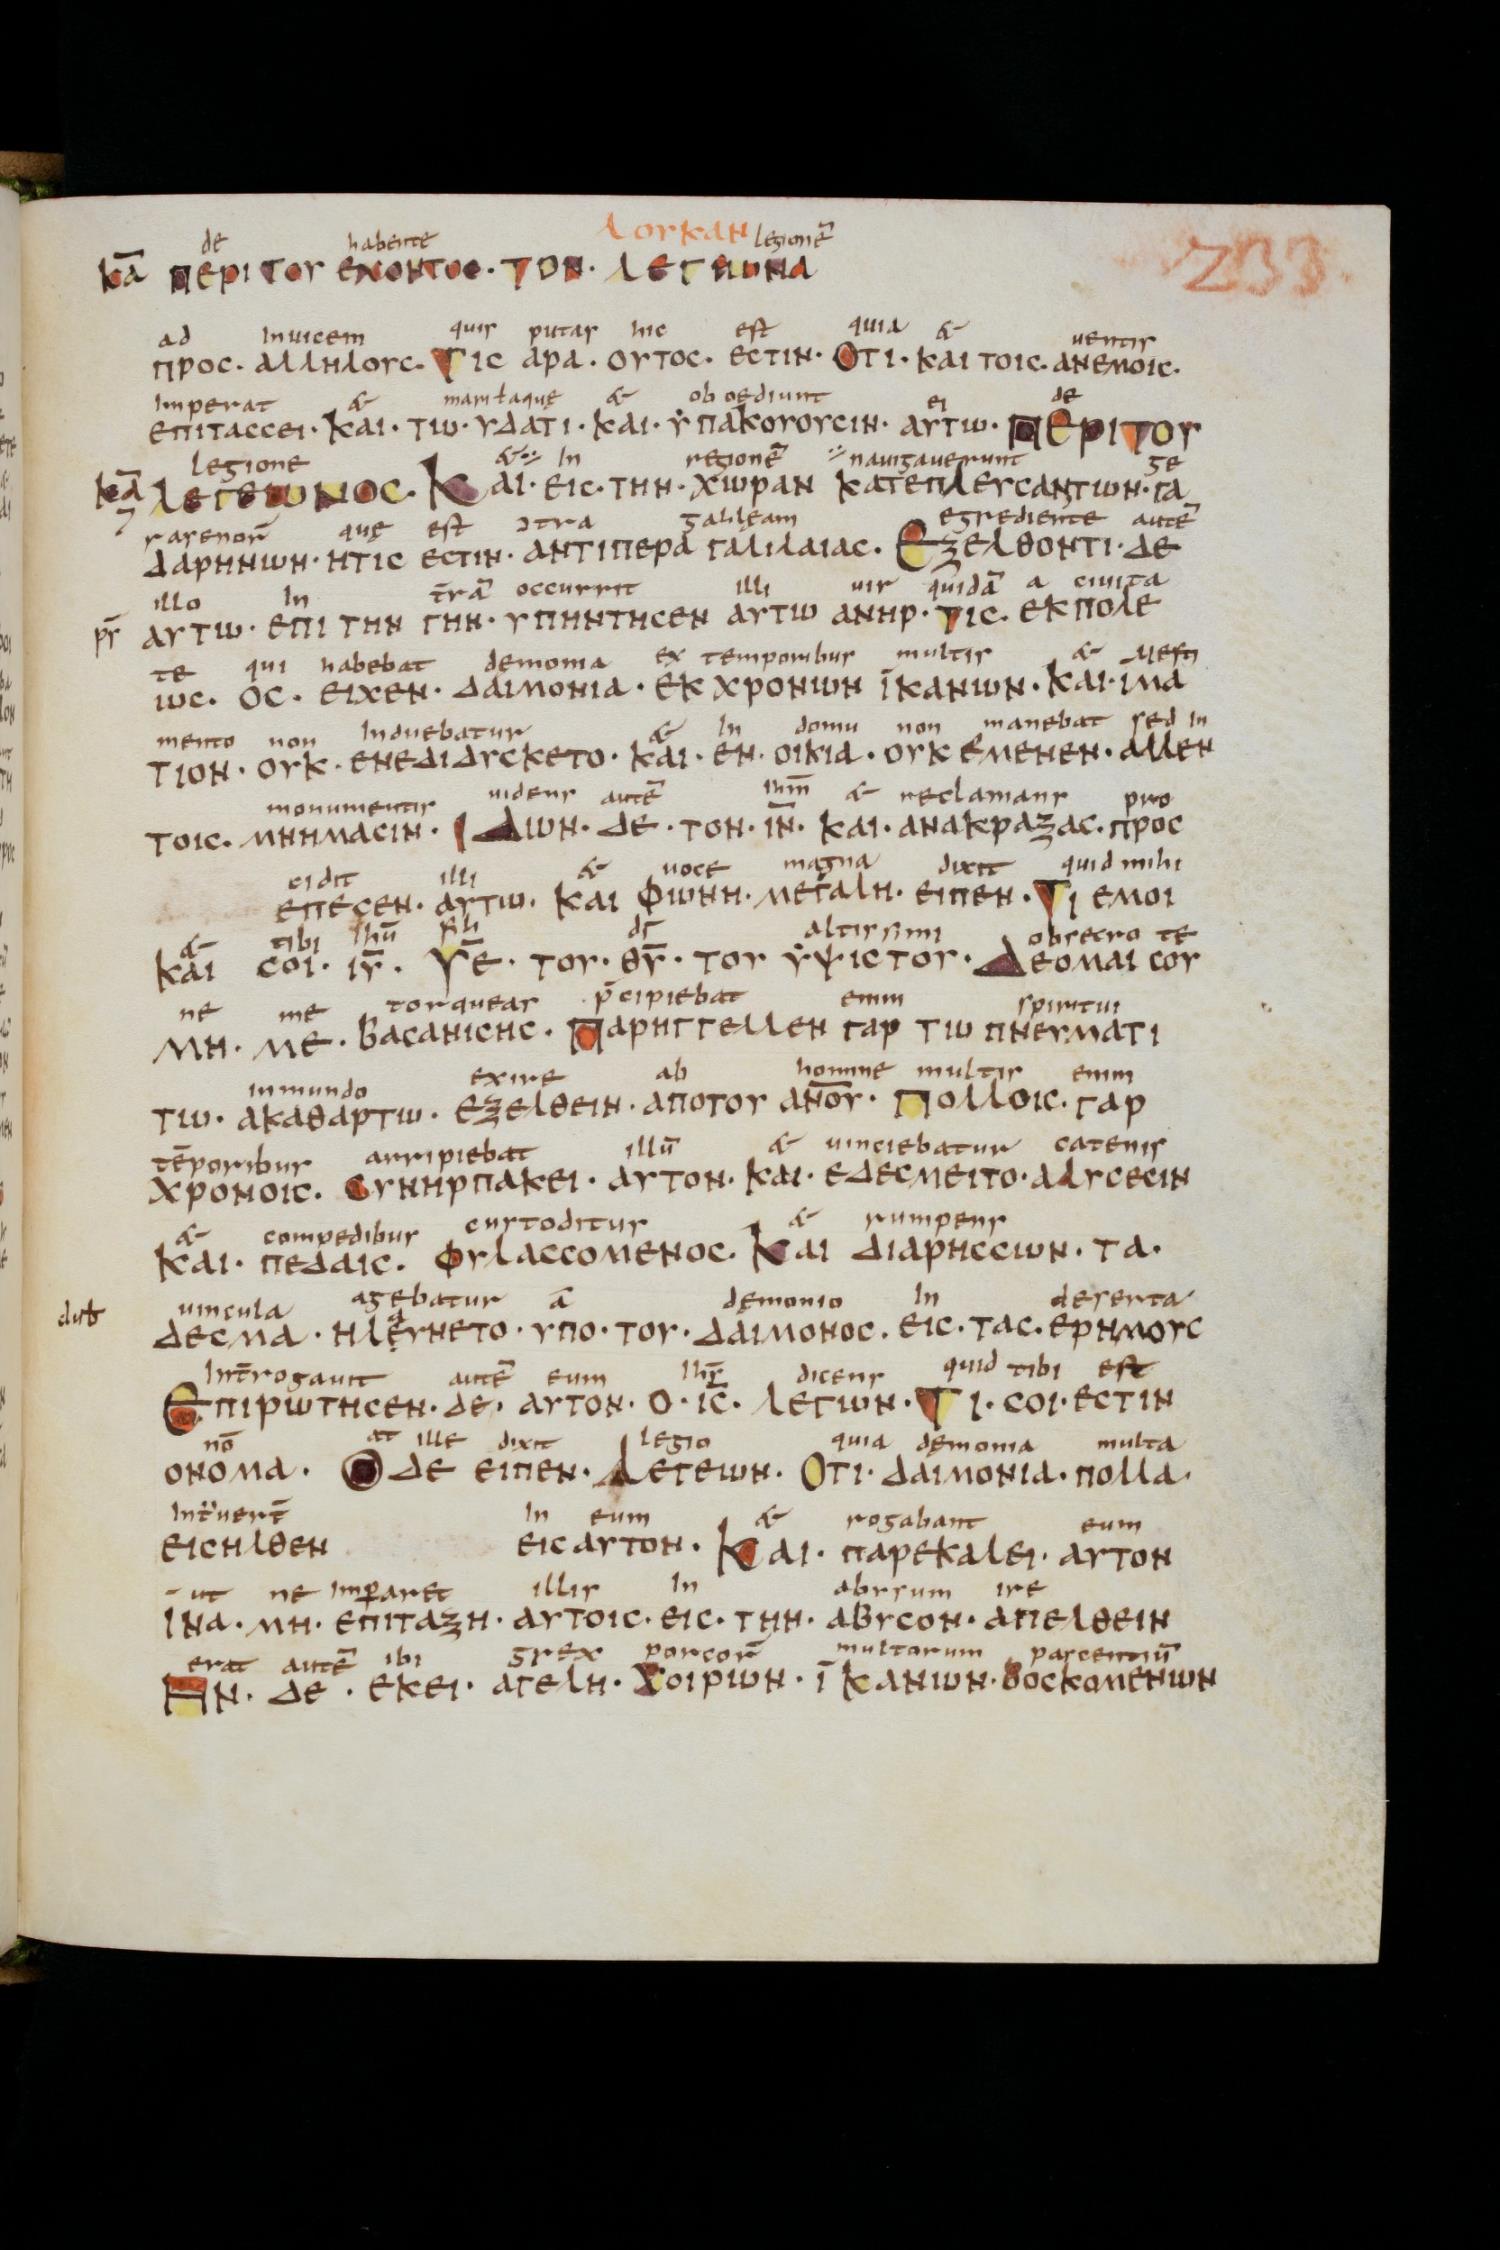 λουκαν
233
de habente legionē
κ̄α περι του εχοντος· τον· λεγηωνα
ad Inuicem quis putas hic est quia & uentis
προς· αλληλους· Τις αρα· ουτος· εστιν· Οτι· και τοις· ανεμοις·
Imperat & mariłaquę & oboediunt ei de
επιτασσει· και· τω· υδατι· και· υπακουουσιν· αυτω· περι του
legione & In regionē nauigauerunt ge
κ̄α λεγεωνος· Και· εις· την· χωραν κατεπλευσαντων· γα
rasenor̄ quę est ɔtra galilęam egrediente autē
δαρηνων· ητις εστιν· αντιπερα γαλιλαιας· Εξελθοντι· δε
illo In tr̄ā occurrit illi uir quidā a ciuita
αυτω· επι την γην· υπηντησεν αυτω ανηρ· τις· εκ πολε
te qui habebat demonia ex temporibus multis & uesti
ως· ος· ειχεν· δαιμονια· εκ χρονων ϊκανων· και· ιμα
mento non Induebatur & In domu non manebat sed in
τιον· ουκ· ενεδιδυσκετο· και· εν· οικια· ουκ εμενεν· αλλεν
monumentis uidens autē ihm̄ & reclamans pro
τοις· μνημασιν· Ιδων· δε· τον· ῑν̄· και· ανακραξας· προς
cidit illi & uoce magna dixit quid mihi
επεσεν· αυτω· και φωνη· μεγαλη· ειπεν· Τι εμοι
& tibi ihū fili dī altissimi obsecro te
και σοι· ῑῡ· Υε̄· του· θῡ· του υψιστου· Δεομαι σου
ne me torqueas p̄cipiebat enim spiritui
μη· με· βασανισης· Παρηγγελλεν γαρ τω πνευματι
inmundo exire ab homine multis enim
τω· ακαθαρτω· εξελθειν· απο του ανο̄υ· Πολλοις· γαρ
tēporibus arripiebat illū & uinciebatur catenis
χρονοις· συνηρπακει· αυτον· και· εδεσμειτο· αλυσεσιν
& compedibus custoditur & rumpens
και· πεδαις· φυλασσομενος· Και διαρησσων· τα·
uincula agebatur ā dęmonio In deserta
δεσμα· ηλευνετο· υπο· του· δαιμονος· εις· τας· ερημους
Int̄rogauit autē eum ihs̄ dicens quid tibi est
Επιρωτησεν· δε· αυτον· ο· ῑς̄· λεγων· Τι· σοι· εστιν
nō at ille dixit legio quia dęmonia multa
ονομα· Ο δε ειπεν· Λεγεων· Οτι· δαιμονια· πολλα·
Intuert̄ In eum & rogabant eum
εισηλθεν εις αυτον· Και· παρεκαλει· αυτον
ut ne Imꝑaret illis In abyssum ire
ινα· μη· επιταξη· αυτοις· εις· την· αβυσον· απελθειν
erat autē ibi grex porcor̄ multorum pascentiū
Ην· δε· εκει· αγελη· χοιρων· ϊκανων· βοσκομενων